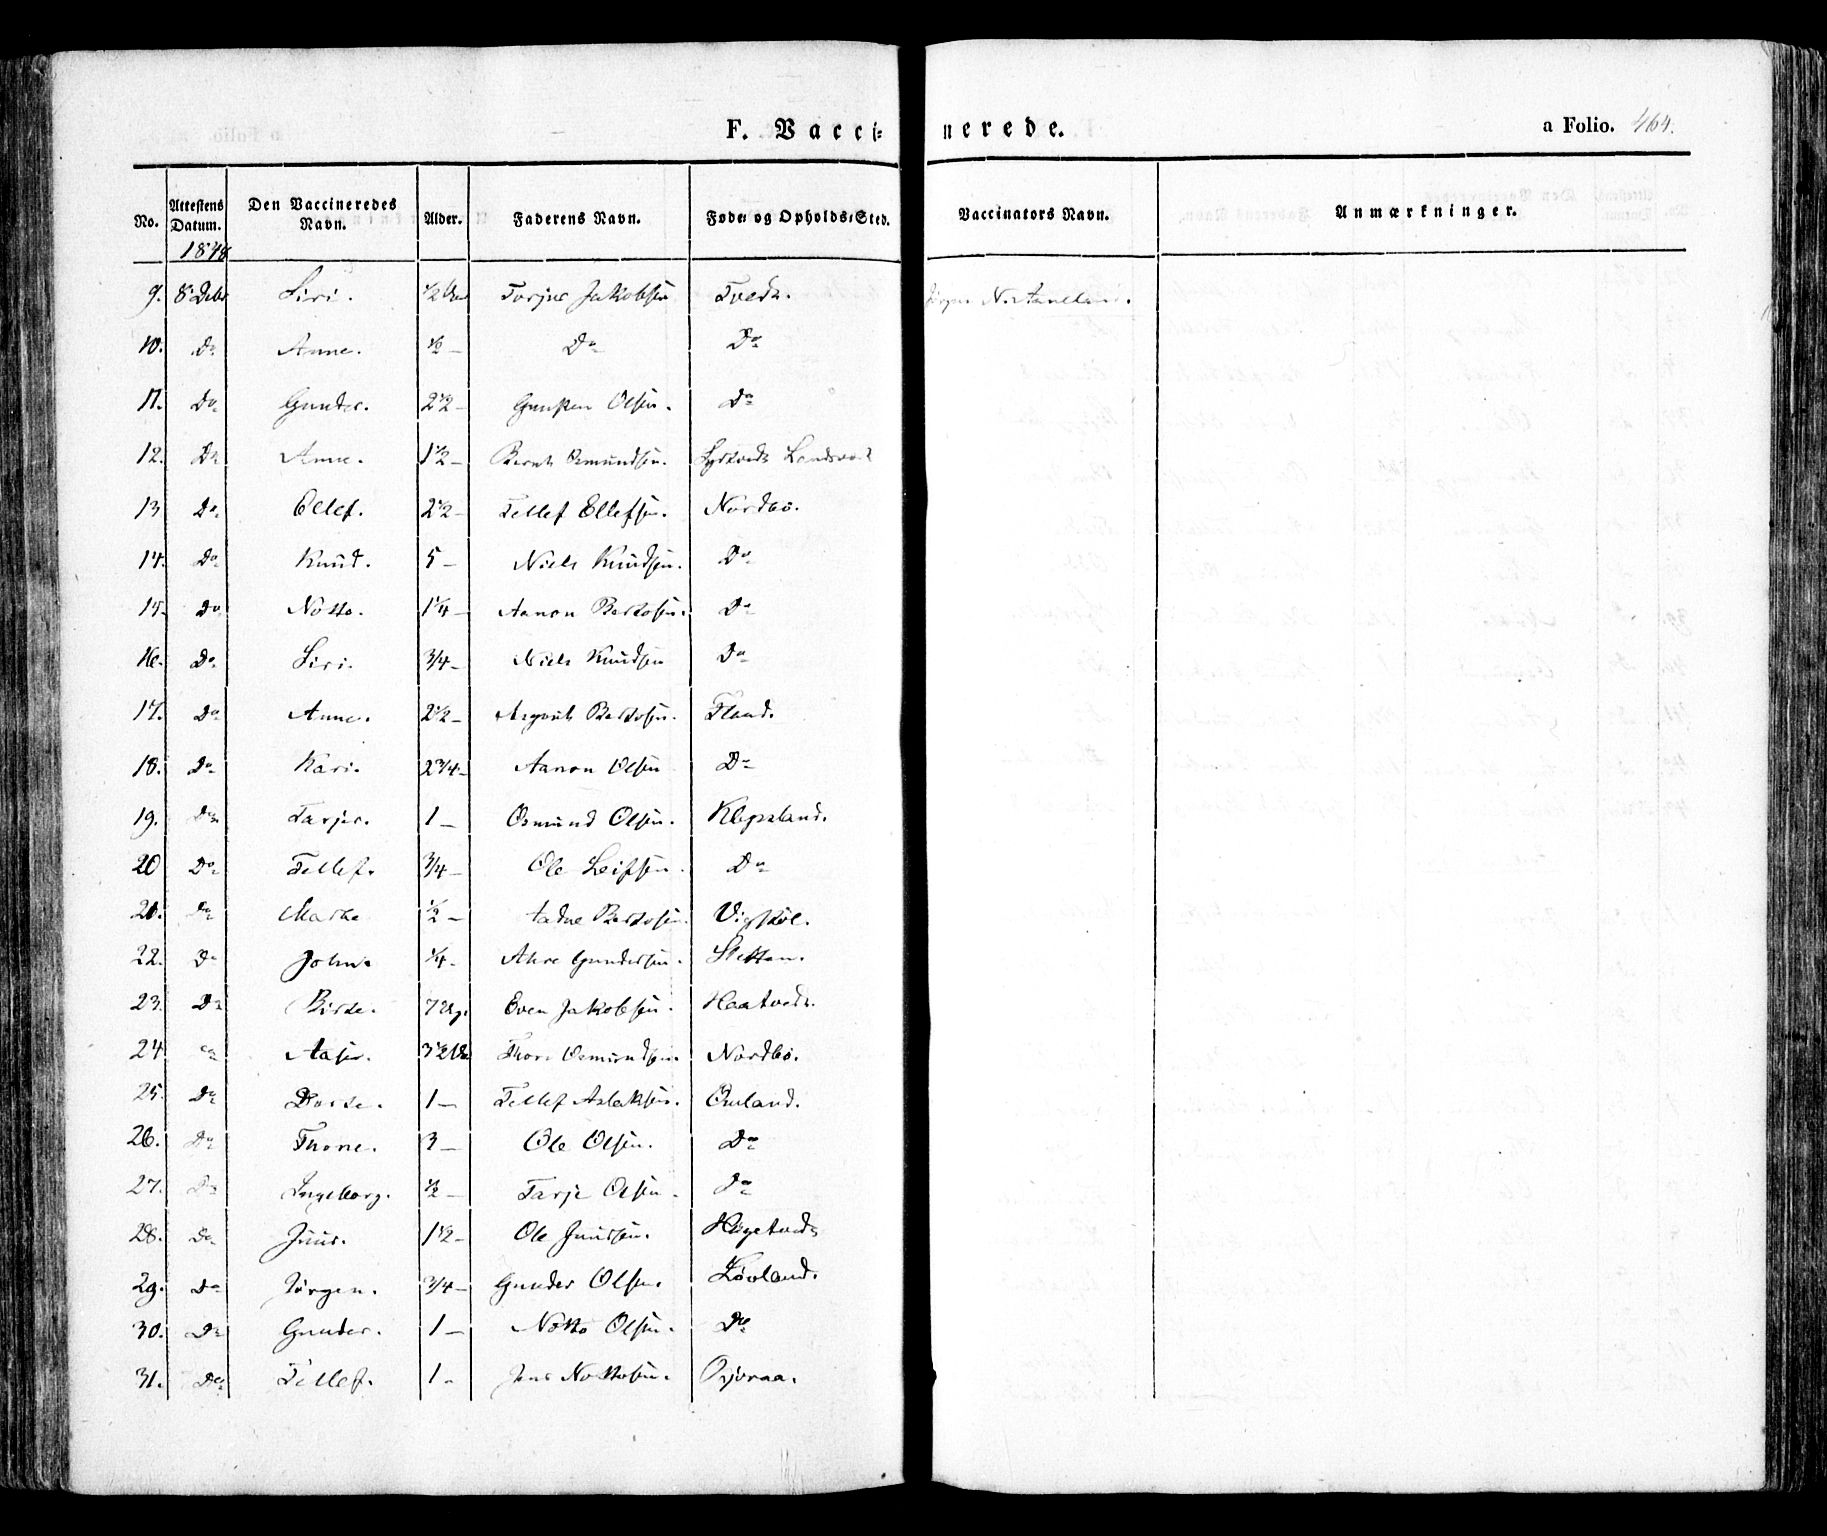 F. Vaccinerede.
a Folio. 464.
No. Attestens Datum. Den Vaccineredes Navn. Alder. Faderens Navn. Føde- og Opholds-Sted. Vaccinators Navn. Anmærkninger.
1848
9. 8 Debr Siri. 1/2 Aar Torjus Jakobsen Tvedt.
10. Do Anne. 1/2 — Do Do
11. Do Gunder. 2 1/2 — Olsen. Do
12. Do Anne. 1 1/2 — Bernt Osmundsen.
13 Do Ellef. 2 1/2 — Tellef Ellefsen. Nordbö.
14. Do Knud. 5 — Niels Knudsen. Do
15. Do Notto. 1 1/4 — Aanon Bertosen. Do
16. Do Siri. 3/4 — Niels Knudsen Do
17. Do Anne. 2 1/2 — Bertosen. Flaad.
18. Do Kari. 2 3/4 — Aanon Olsen Do
19. Do Tarjer. 1 — Osmund Olsen. Klepsland.
20 Do Tellef. 3/4 — Ole Leifsen. Do
21. Do Marthe 1/2 — Tadne Bertosen.
22. Do John. 1/4 — Gundersen. Sletten.
23. Do Birte. 7 Ug. Even Jakobsen. Haatvedt.
24 Do 3 1/2 Aar Thore Osmundsen. Nordbö.
25. Do Dorte. 1 — Tellef Aslaksen. Omland.
26. Do Thone. 3 — Ole Olsen. Do
27. Do Ingeborg. 1/2 — Tarje Olsen. Do
28. Do Juus. 1 1/2 — Ole Juussen. Högetvedt
29. Do Jörgen. 3/4 — Gunder Olsen. Lövland.
30. Do Gunder. 1 — Notto Olsen. Do
31. Do Tellef. 1 — Jens Nottosen.